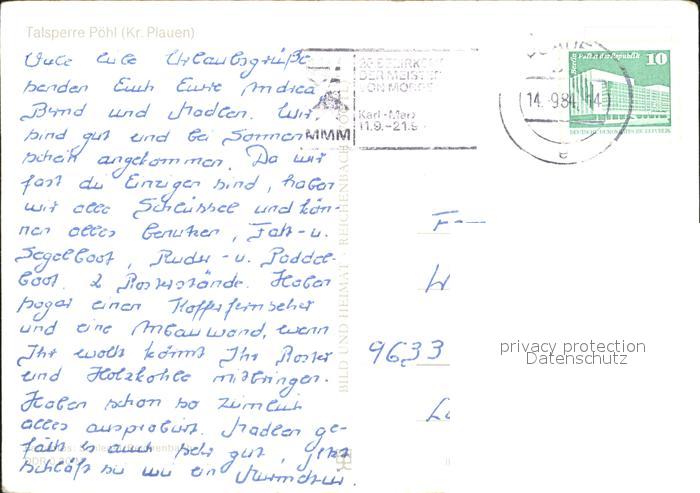 Talsperre Pöhl (Kr. Plauen)
Viele liebe Urlaubsgrüße
senden Euch Eure Andrea
Bernd und Madlen. Wir
sind gut und bei Sonnen-
schein angekommen. Da wir
fast die Einzigen sind, haben
wir alle Schlüssel und kön-
nen alles benutzen, Falt- u.
Segelboot, Ruder- u. Paddel-
boot. 2 Rosterstände. Haben
sogar einen Kofferfernseher
und eine Anbauwand, wenn
Ihr wollt könnt Ihr Roster
und Holzkohle mitbringen.
Haben schon so ziemlich
alles ausprobiert. Madlen ge-
fällt es auch sehr gut, jetzt
schläft sie wie ein Murmeltier.
BILD UND HEIMAT · REICHENBACH
MMM
DER MEISTER
VON MORGEN
Karl-Marx
11.9.-21.9.
14.-9.84.-14
Berlin, Palast der Republik
10
DEUTSCHE DEMOKRATISCHE REPUBLIK
F
9633
privacy protection
Datenschutz